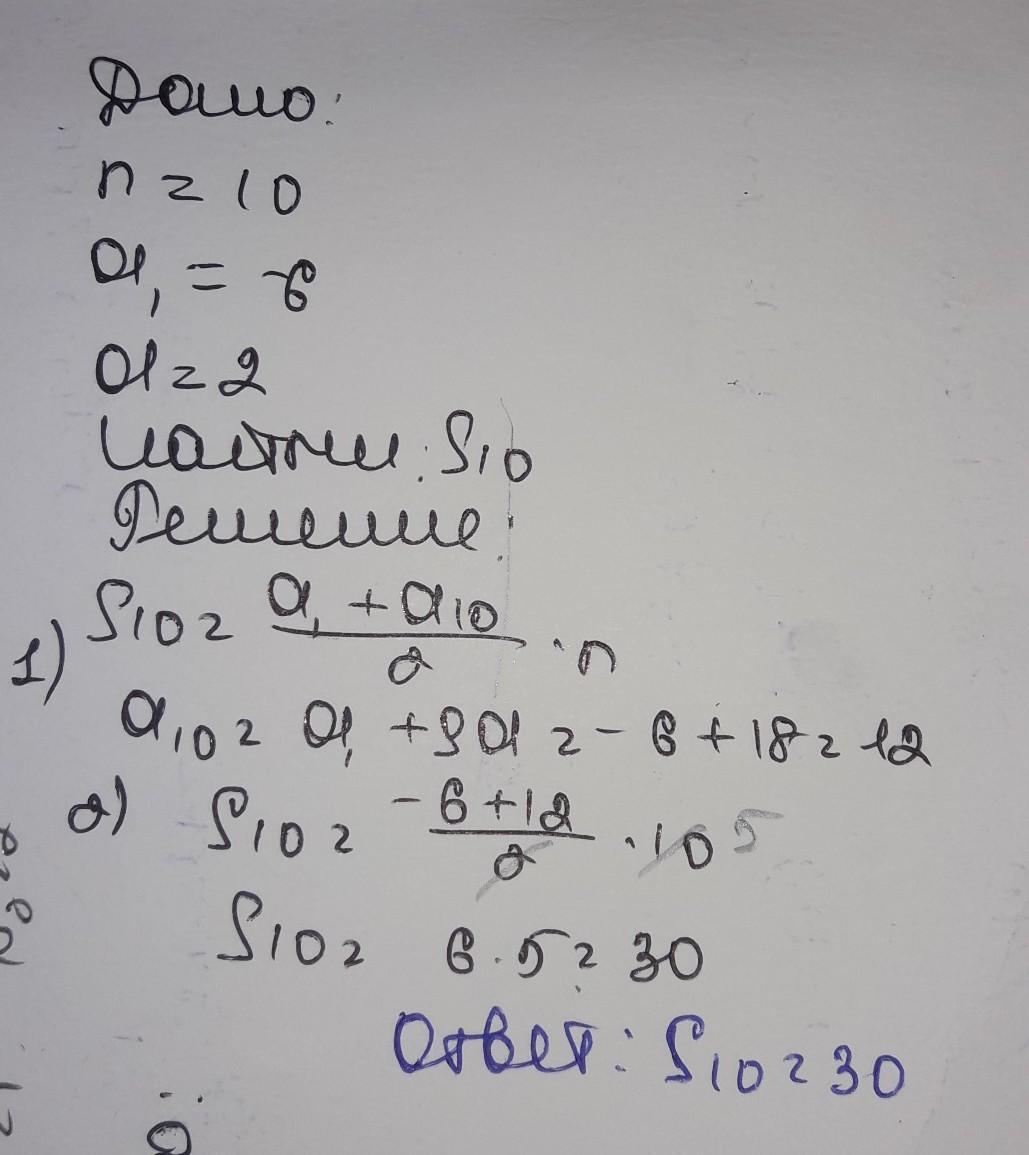 Дано:
n = 10
a₁ = -6
d = 2
Найти: S₁₀
Решение:
1) S₁₀ = (a₁ + a₁₀)/2 · n
a₁₀ = a₁ + 9d = -6 + 18 = 12
2) S₁₀ = (-6 + 12)/2 · 10 5
S₁₀ = 6 · 5 = 30
Ответ: S₁₀ = 30